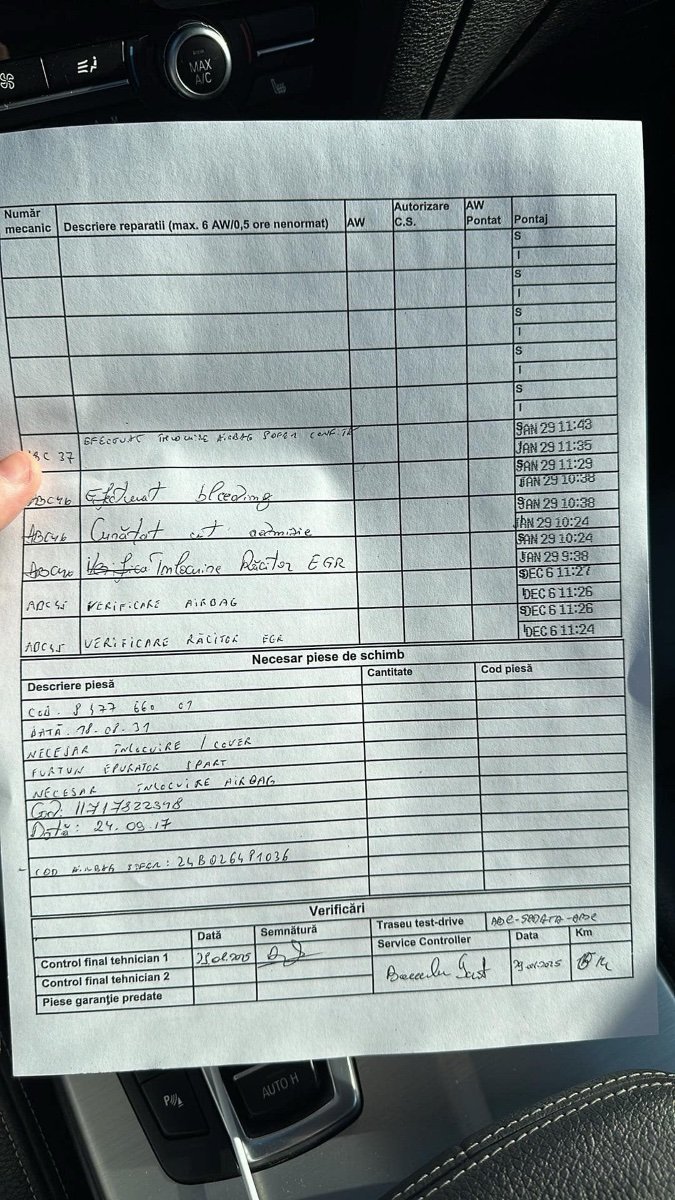 MAX
A/C
Număr mecanic Descriere reparatii (max. 6 AW/0,5 ore nenormat) AW Autorizare C.S. AW Pontat Pontaj
S
I
S
I
S
I
S
I
S
I
37 EFECTUAT ÎNLOCUIRE AIRBAG SOFER JAN 29 11:43
JAN 29 11:35
JAN 29 11:29
ABC46 Efectuat bleeding JAN 29 10:38
JAN 29 10:38
ABC46 Curățat cut admisie JAN 29 10:24
JAN 29 10:24
Înlocuire Răcitor EGR JAN 29 9:38
DEC 6 11:27
VERIFICARE AIRBAG DEC 6 11:26
DEC 6 11:26
VERIFICARE RĂCITOR EGR DEC 6 11:24
Necesar piese de schimb
Descriere piesă Cantitate Cod piesă
COD. 8 477 660 01
DATĂ. 18.08.31
NECESAR ÎNLOCUIRE / COVER
FURTUN EPURATOR SPART
NECESAR ÎNLOCUIRE AIRBAG
Cod. 11717822348
Dată: 24.09.17
COD AIRBAG SOFER: 24B0264P1036
Verificări
Dată Semnătură Traseu test-drive
Control final tehnician 1 29.01.2025 Service Controller Data Km
Control final tehnician 2 29.01.2025
Piese garanţie predate
P
AUTO H